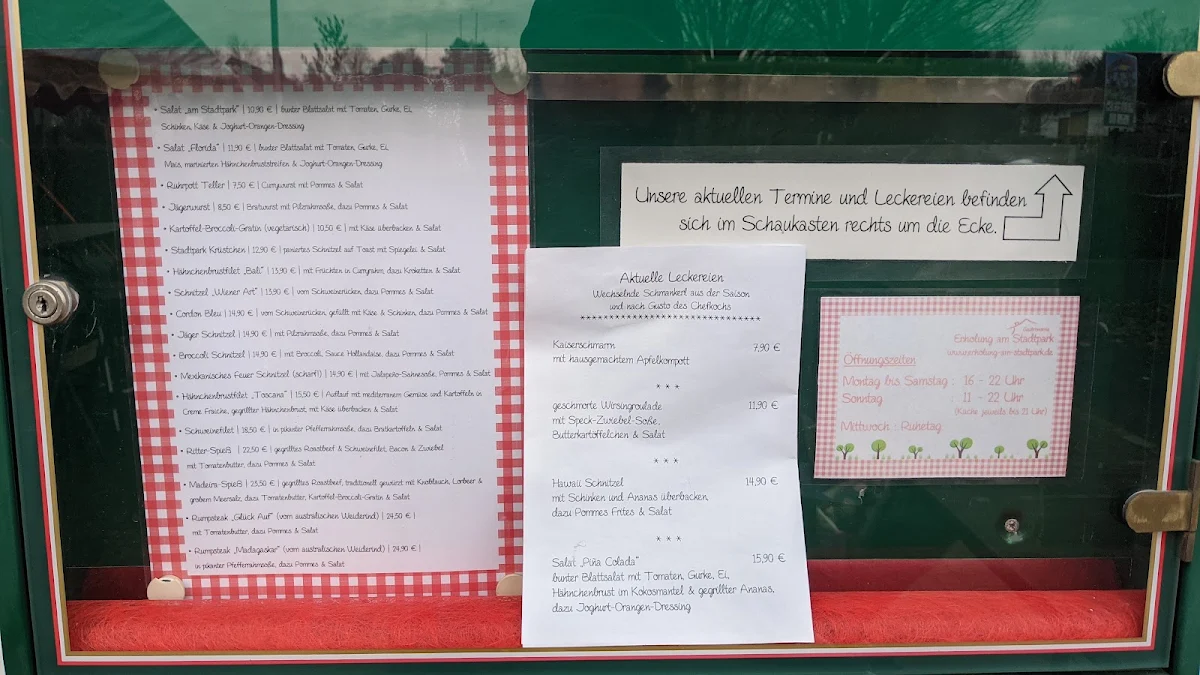 • Salat „am Stadtpark" | 10,90 € | bunter Blattsalat mit Tomaten, Gurke, Ei,
Schinken, Käse & Joghurt-Orangen-Dressing
• Salat „Florida" | 11,90 € | bunter Blattsalat mit Tomaten, Gurke, Ei,
Mais, marinierten Hähnchenbruststreifen & Joghurt-Orangen-Dressing
• Ruhrpott Teller | 7,50 € | Currywurst mit Pommes & Salat
• Jägerwurst | 8,50 € | Bratwurst mit Pilzrahmsoße, dazu Pommes & Salat
• Kartoffel-Broccoli-Gratin (vegetarisch) | 10,50 € | mit Käse überbacken & Salat
• Stadtpark Krüstchen | 12,90 € | paniertes Schnitzel auf Toast mit Spiegelei & Salat
• Hähnchenbrustfilet „Bali" | 13,90 € | mit Früchten in Curryrahm, dazu Kroketten & Salat
• Schnitzel „Wiener Art" | 13,90 € | vom Schweinerücken, dazu Pommes & Salat
• Cordon Bleu | 14,90 € | vom Schweinerücken, gefüllt mit Käse & Schinken, dazu Pommes & Salat
• Jäger Schnitzel | 14,90 € | mit Pilzrahmsoße, dazu Pommes & Salat
• Broccoli Schnitzel | 14,90 € | mit Broccoli, Sauce Hollandaise, dazu Pommes & Salat
• Mexikanisches Feuer Schnitzel (scharf!) | 14,90 € | mit Jalapeño-Sahnesoße, Pommes & Salat
• Hähnchenbrustfilet „Toscana" | 15,50 € | Auflauf mit mediterranem Gemüse und Kartoffeln in
Creme Fraiche, gegrillter Hähnchenbrust, mit Käse überbacken & Salat
• Schweinefilet | 18,50 € | in pikanter Pfefferrahmsoße, dazu Bratkartoffeln & Salat
• Ritter-Spieß | 22,50 € | gegrilltes Roastbeef & Schweinefilet, Bacon & Zwiebel
mit Tomatenbutter, dazu Pommes & Salat
• Madeira-Spieß | 23,50 € | gegrilltes Roastbeef, traditionell gewürzt mit Knoblauch, Lorbeer &
grobem Meersalz, dazu Tomatenbutter, Kartoffel-Broccoli-Gratin & Salat
• Rumpsteak „Glück Auf" (vom australischen Weiderind) | 24,50 € |
mit Tomatenbutter, dazu Pommes & Salat
• Rumpsteak „Madagaskar" (vom australischen Weiderind) | 24,90 € |
in pikanter Pfefferrahmsoße, dazu Pommes & Salat
Unsere aktuellen Termine und Leckereien befinden
sich im Schaukasten rechts um die Ecke.
Aktuelle Leckereien
Wechselnde Schmankerl aus der Saison
und nach Gusto des Chefkochs
*******************************
Kaiserschmarrn 7,90 €
mit hausgemachtem Apfelkompott
* * *
geschmorte Wirsingroulade 11,90 €
mit Speck-Zwiebel-Soße,
Butterkartöffelchen & Salat
* * *
Hawaii Schnitzel 14,90 €
mit Schinken und Ananas überbacken
dazu Pommes Frites & Salat
* * *
Salat „Piña Colada" 15,90 €
bunter Blattsalat mit Tomaten, Gurke, Ei,
Hähnchenbrust im Kokosmantel & gegrillter Ananas,
dazu Joghurt-Orangen-Dressing
Gastronomie
Erholung am Stadtpark
www.erholung-am-stadtpark.de
Öffnungszeiten
Montag bis Samstag : 16 - 22 Uhr
Sonntag : 11 - 22 Uhr
(Küche jeweils bis 21 Uhr)
Mittwoch : Ruhetag